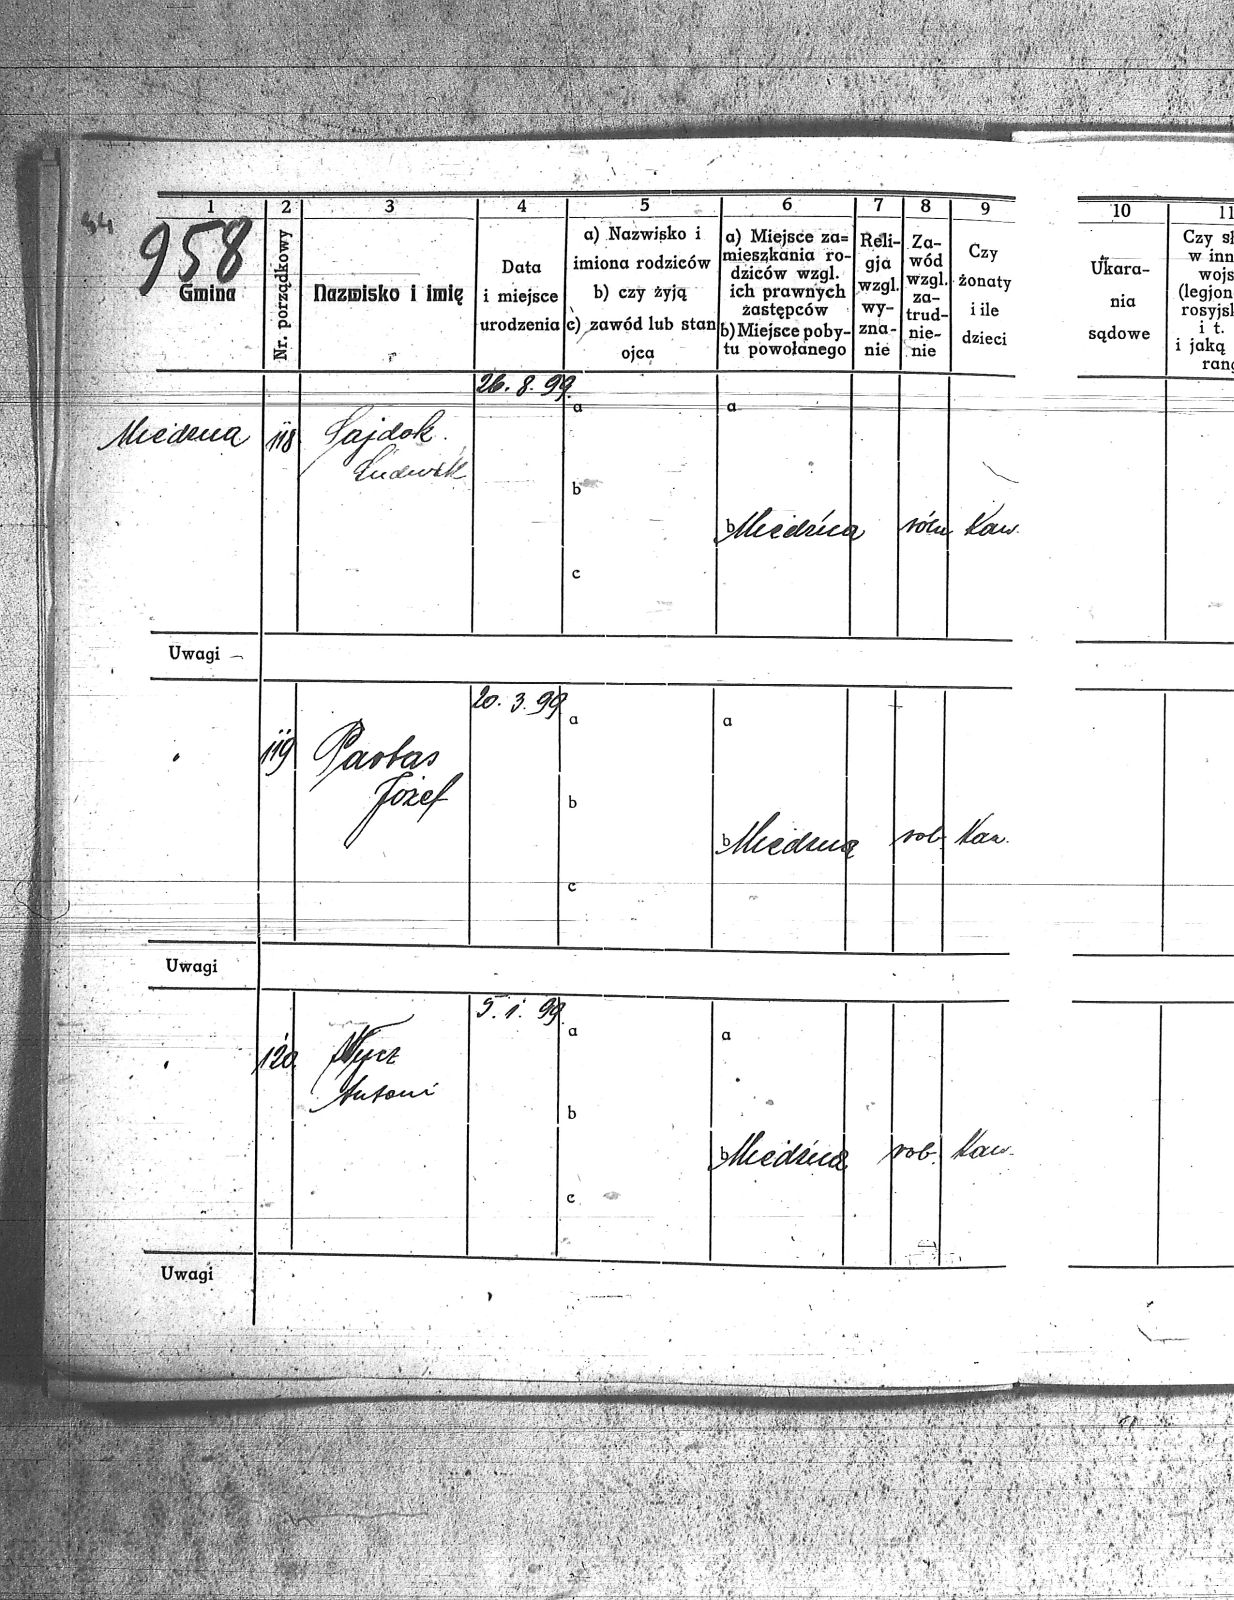 44
958
1 2 3 4 5 6 7 8 9 10 11
Gmina
Nr. porządkowy
Nazwisko i imię
Data
i miejsce
urodzenia
a) Nazwisko i
imiona rodziców
b) czy żyją
c) zawód lub stan
ojca
a) Miejsce za=
mieszkania ro-
dziców wzgl.
ich prawnych
zastępców
b) Miejsce poby-
tu powołanego
Reli-
gja
wzgl.
wy-
zna-
nie
Za-
wód
wzgl.
za-
trud-
nie-
nie
Czy
żonaty
i ile
dzieci
Ukara-
nia
sądowe
Czy sł
w inn
wojs
(legjon
rosyjsk
i t.
i jaką
rang
26. 8. 99.
Miedzna 118 Sajdok
Ludwik
a a
b
b Miedźna róln Kaw.
c
Uwagi
20. 3. 99.
119 Parbas
Józef
a a
b
b Miedzna rob. Kaw.
c
Uwagi
5. 1. 99.
120. Wycz
Antoni
a a
b
b Miedźna rob. Kaw.
c
Uwagi